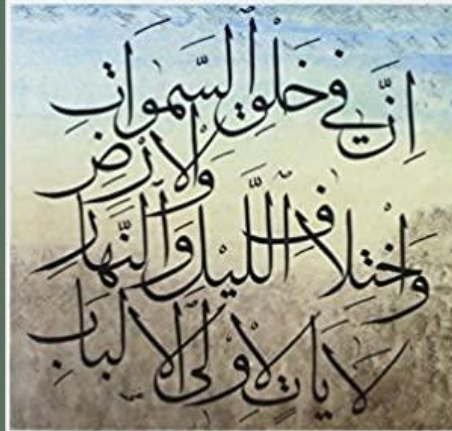 اِنَّ فِي خَلْقِ السَّمٰوَاتِ
وَالْاَرْضِ
وَاخْتِلَافِ اللَّيْلِ وَالنَّهَارِ
لَاٰيَاتٍ لِاُولِى الْاَلْبَابِ